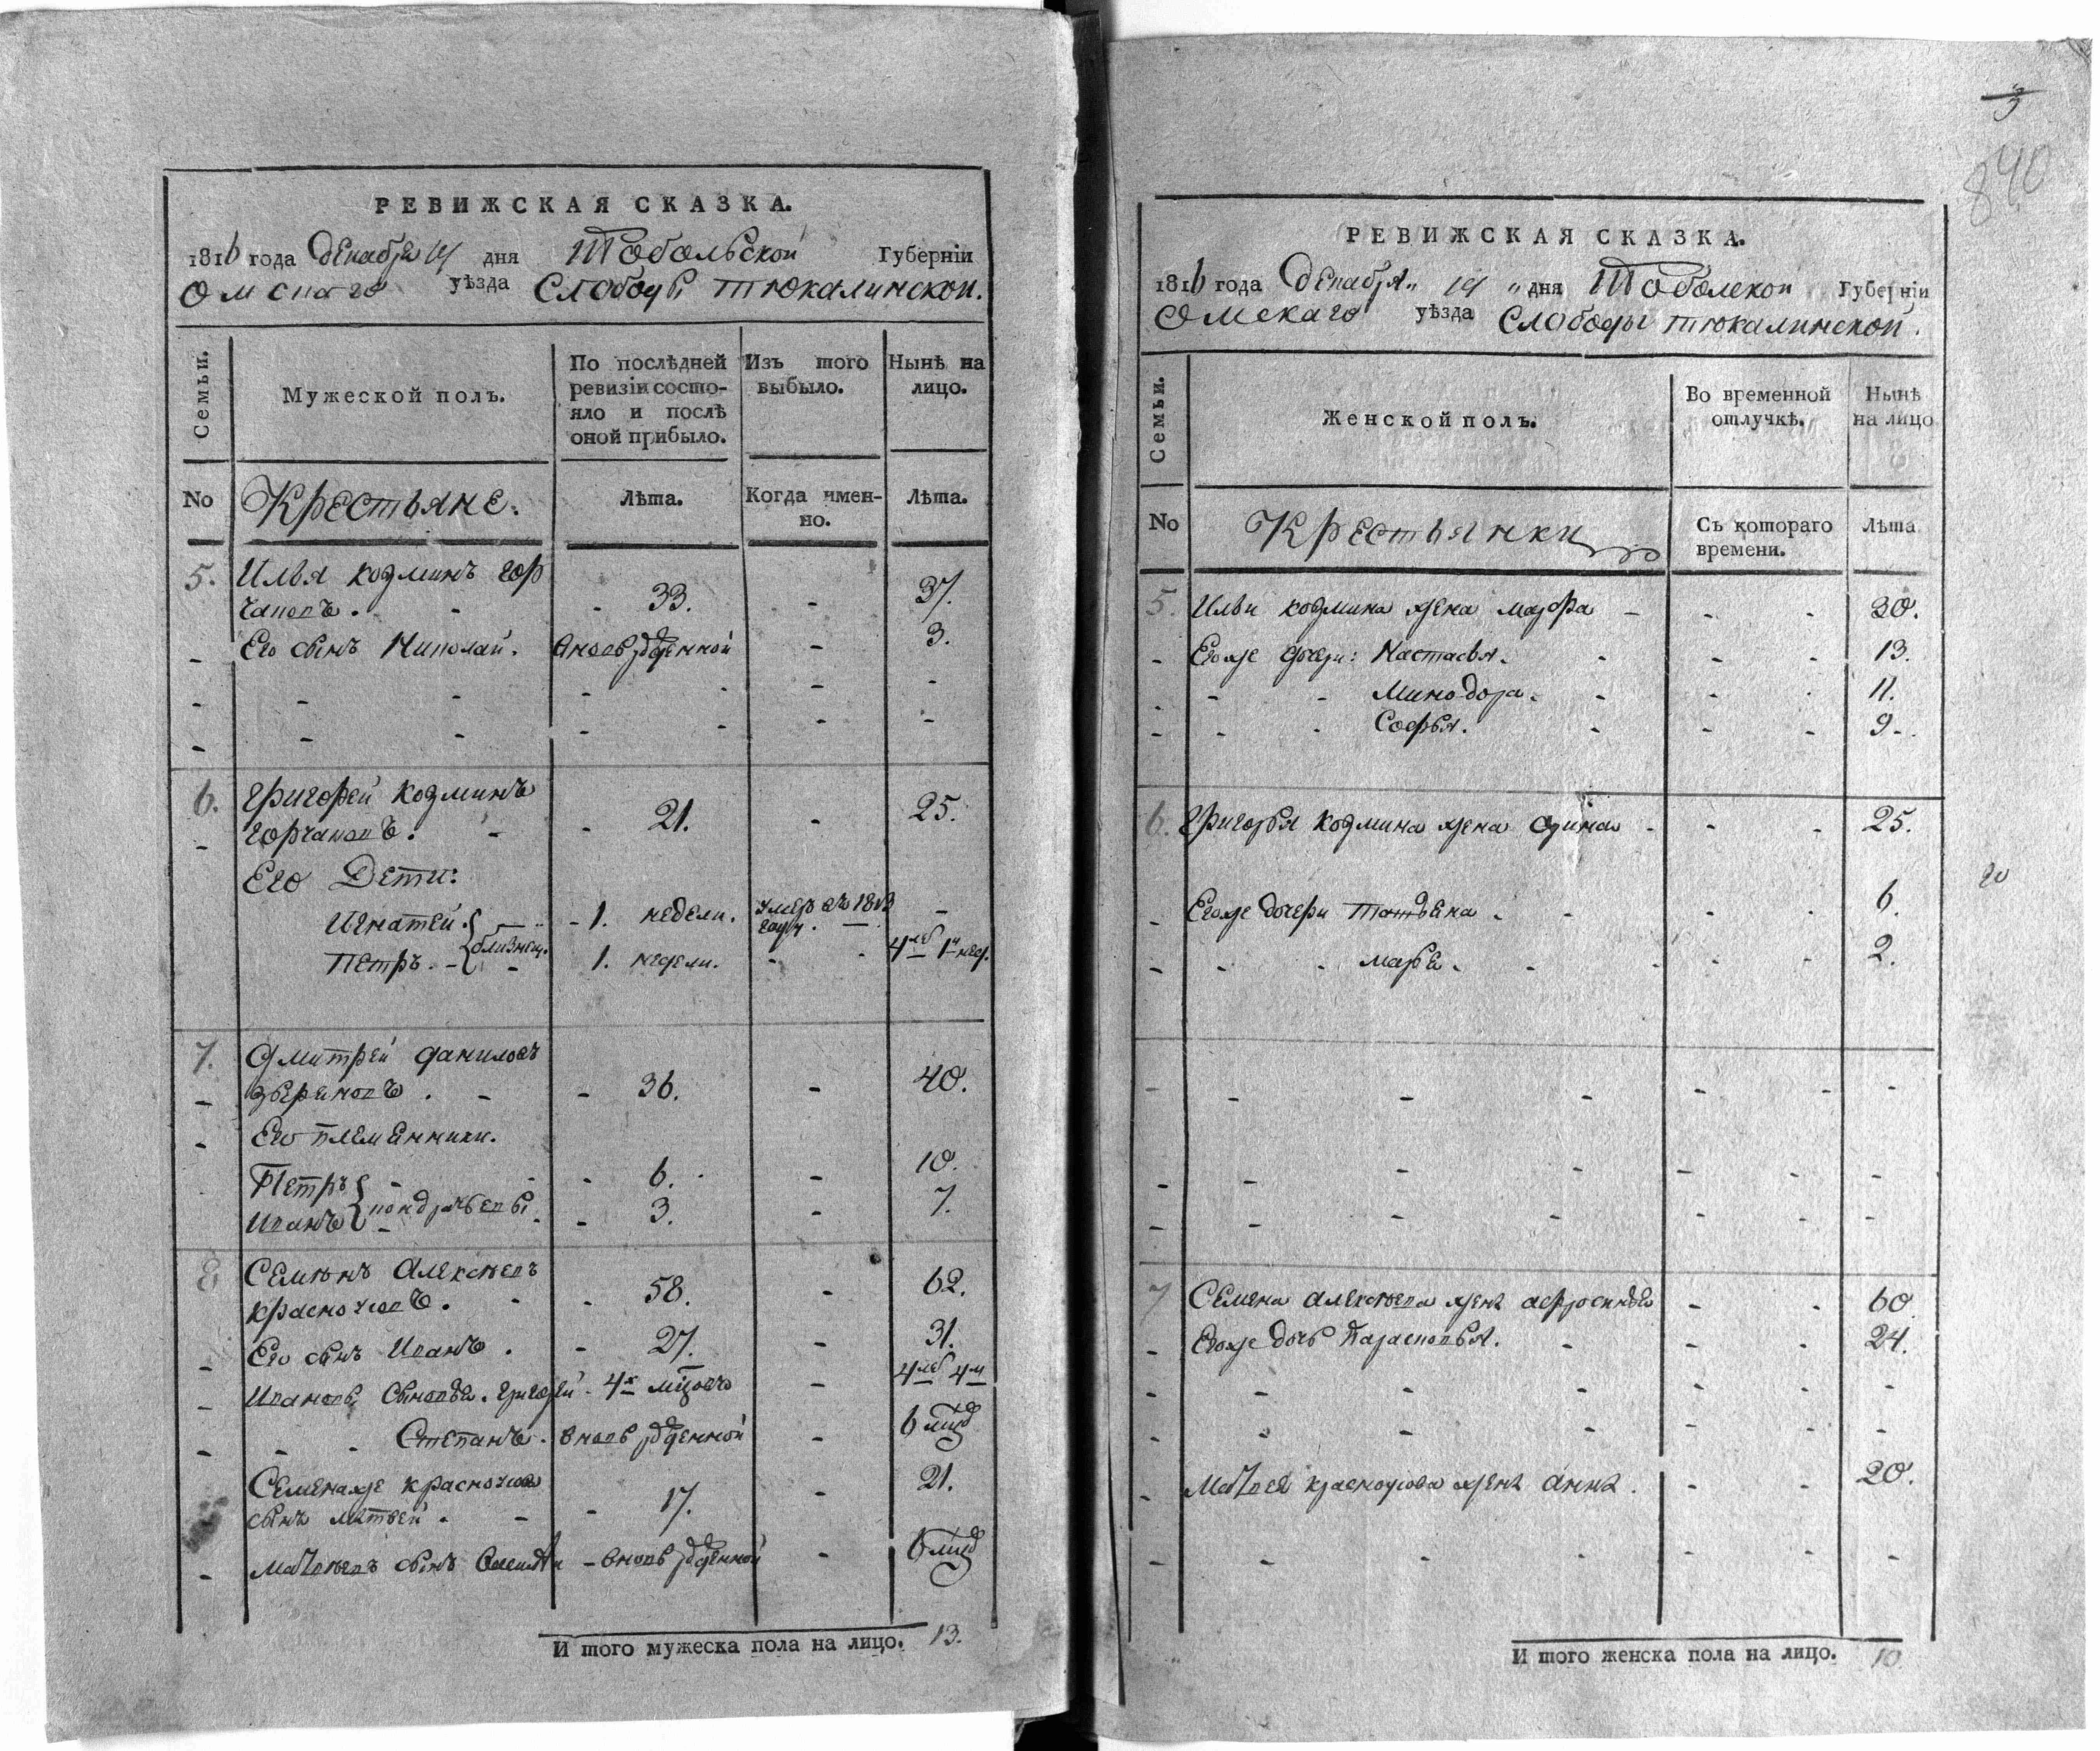 РЕВИЖСКАЯ СКАЗКА.
1816 года декабря 14 дня Тобольской Губерніи
Омскаго уѣзда Слободы Тюкалинской.
Семьи. Мужеской полъ. По послѣдней ревизіи состояло и послѣ оной прибыло. Изъ того выбыло. Нынѣ на лицо.
No Крестьяне. Лѣта. Когда имен-но. Лѣта.
5. Илья козминъ гор
чаковъ. - - 33. - 37.
- Его сынъ Николай. вновь рожденной - 3.
6. Григорей козминъ
- горчаковъ. - - 21. - 25.
Его Дети:
Игнатей. - 1. недели. умеръ въ 181 году. -
близнецы
Петръ. - 1. недели. - 4 лет 1 нед.
7. Дмитрей даниловъ
- звериновъ. - - 36. - 40.
- Его племянники.
Петръ - - 6. - 10.
кондратьевы
Иванъ - - 3. - 7.
8 Семенъ Алексеевъ
красноусовъ. - - 58. - 62.
- Его сынъ Иванъ. - 27. - 31.
- Ивановы сыновья. григорей - 4х мцовъ - 4 лет 4 м
- - - Степанъ. вновь рожденной - 6 мцов
Семенаже красноусова
сынъ матвей. - - 17. - 21.
- Матвеевъ сынъ - вновь рожденной - 6 мцов
И того мужеска пола на лицо. 13.
3
840
РЕВИЖСКАЯ СКАЗКА.
1816 года декабря 14 дня Тоболской Губерніи
Омскаго уѣзда Слободы тюкалинской.
Семьи. Женской полъ. Во временной отлучкѣ. Нынѣ на лицо
No Крестьянки Съ котораго времени. Лѣта
5. Ильи козмина жена марфа - - - 30.
- Егоже дочери: Настасья. - - - 13.
- - - Минодора. - - - 11.
- - - Софья. - - - 9.
6. Григорья козмина жена - - - 25.
- Егоже дочери татьяна. - - - 6.
- - - марья. - - - 2.
7 Семена алексеева жена афросинья - - 60
- Егоже дочь Парасковья. - - - 24.
- Матвея красноусова жена анна. - - 20.
И того женска пола на лицо. 10